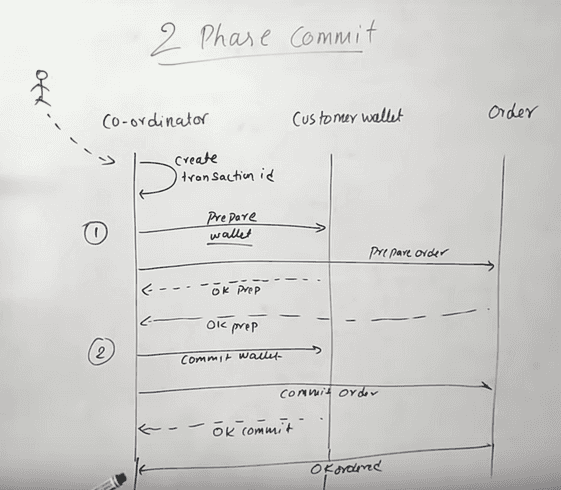 2 Phase Commit
Co-ordinator
Customer wallet
Order
Create
transaction id
1
Prepare
wallet
Prepare order
OK Prep
OK prep
2
Commit wallet
Commit order
OK Commit
OK ordered